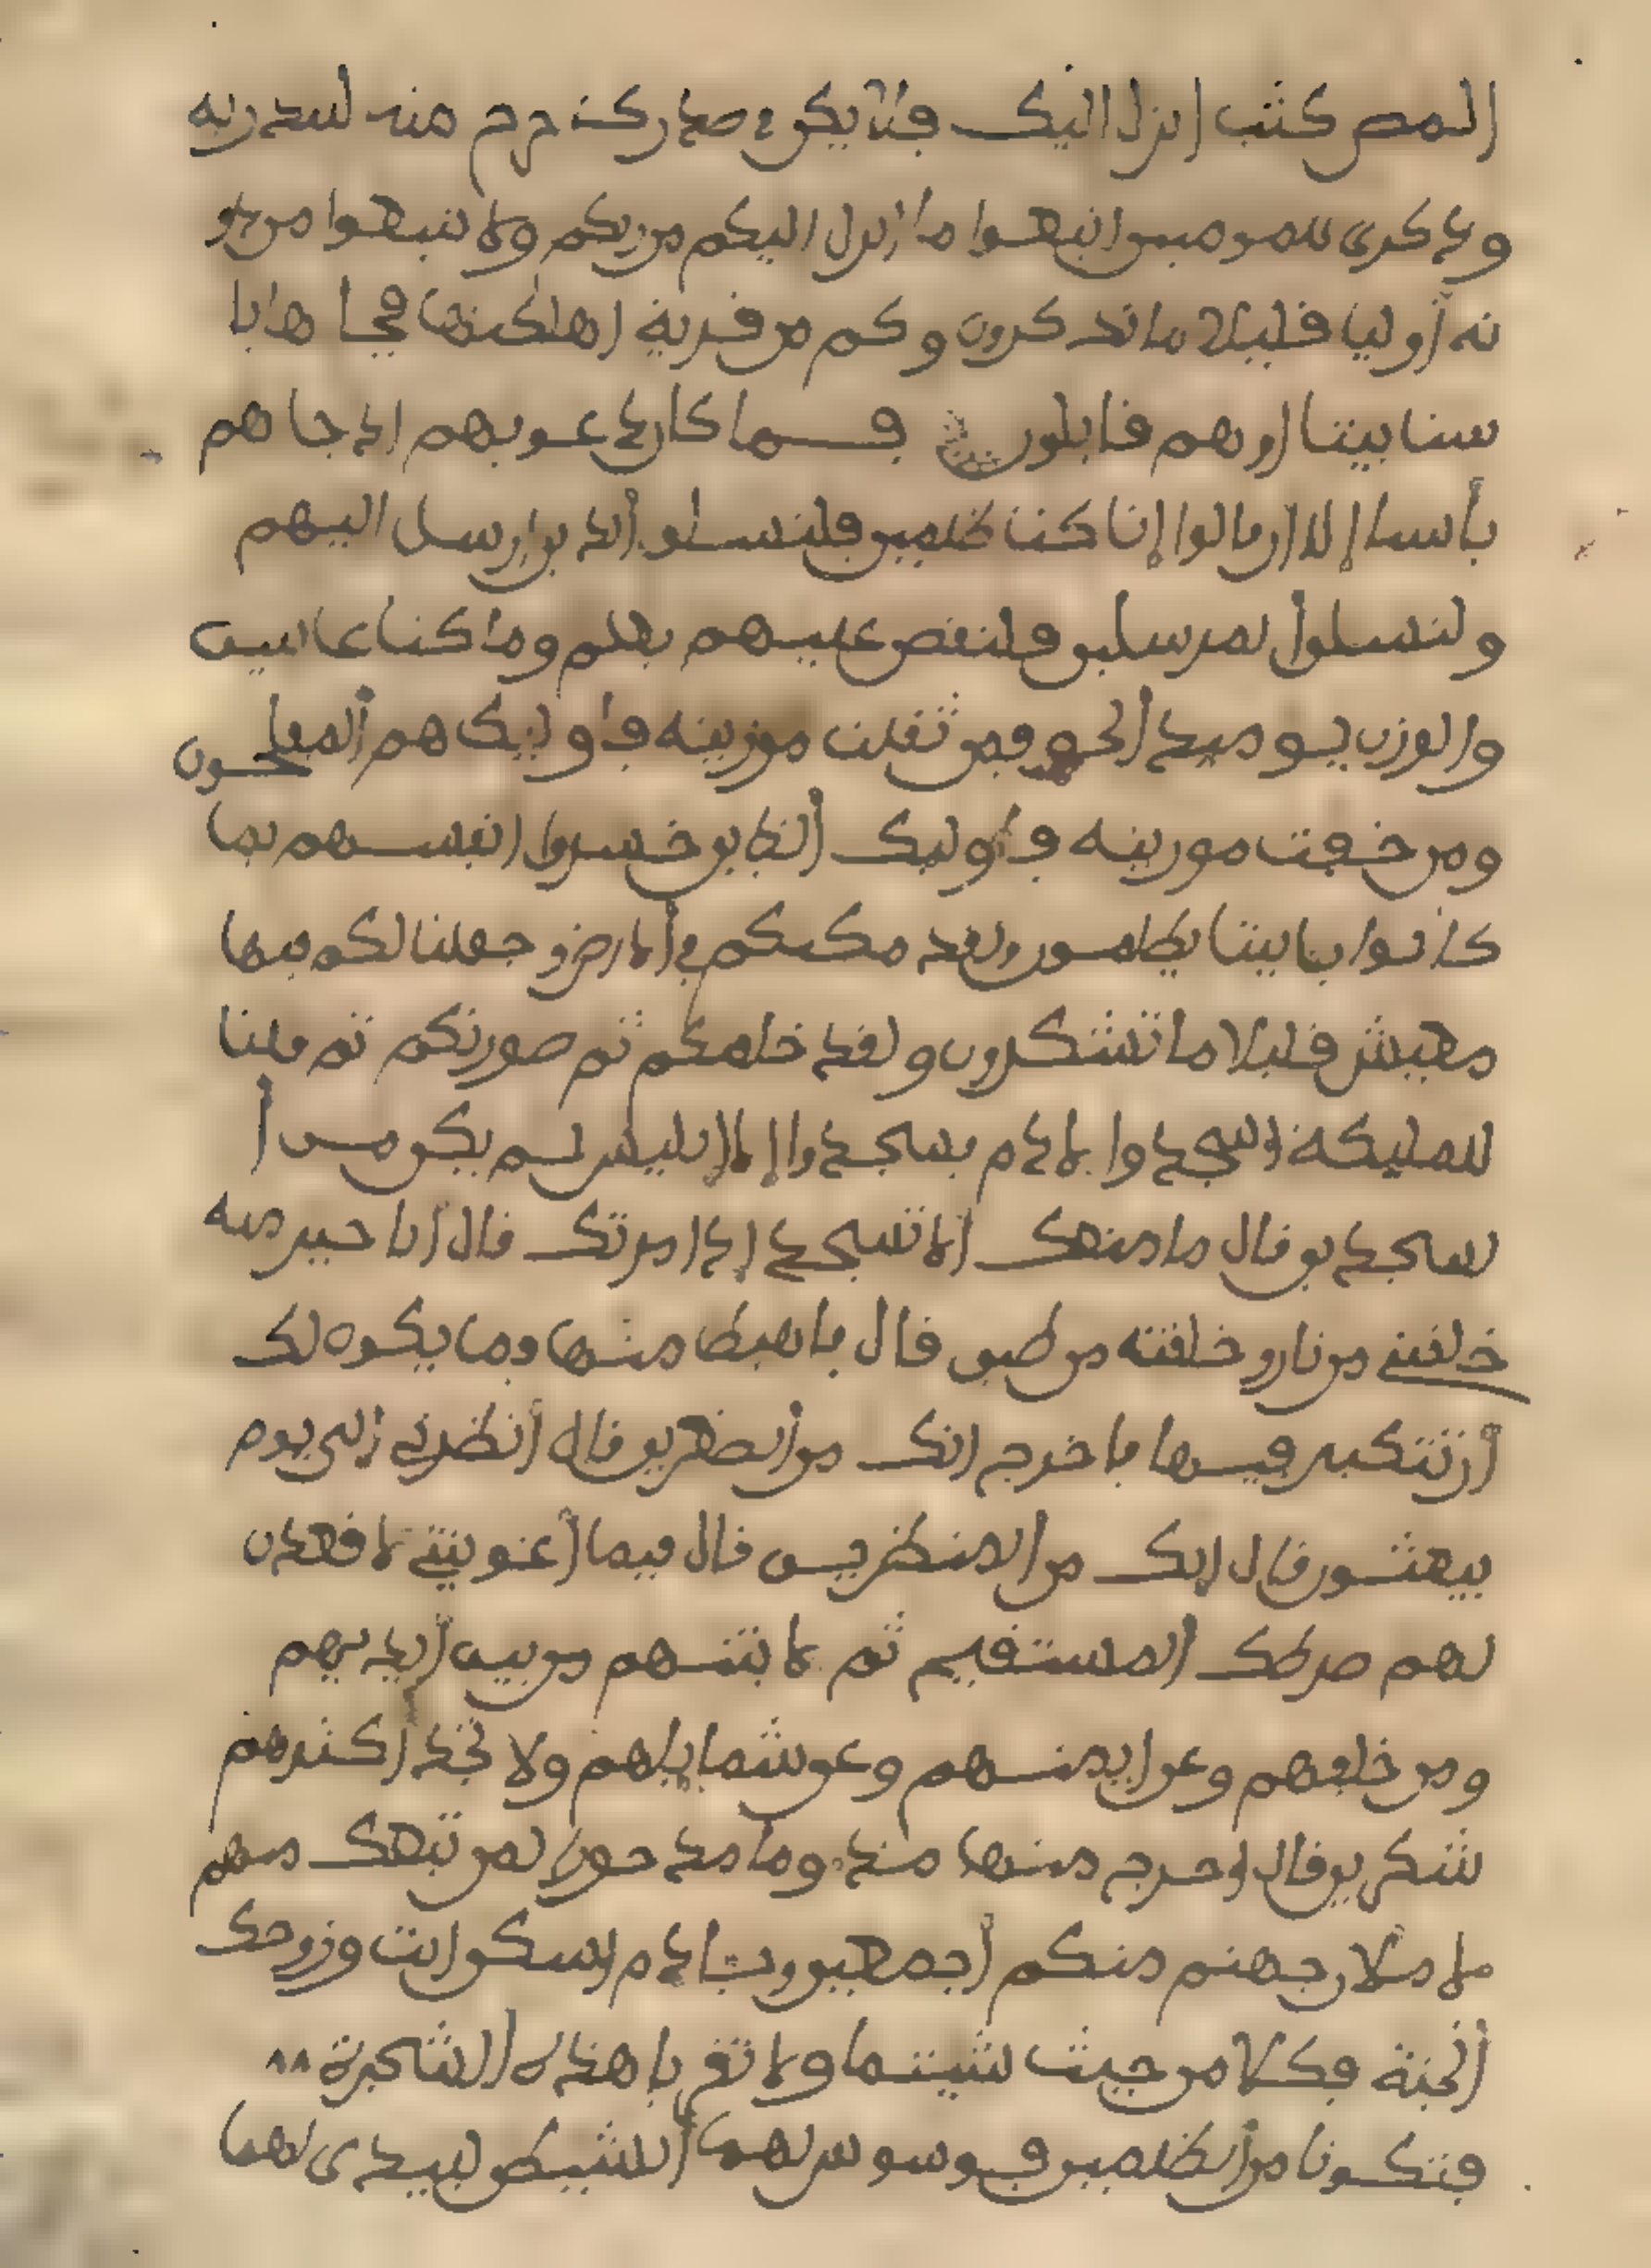 المص كتب انزل اليك فلا يكن في صدرك حرج منه لتنذر به
وذكرى للمومنين اتبعوا ما انزل اليكم من ربكم ولا تتبعوا من دو
نه أوليا قليلا ما تذكرون وكم من قرية اهلكنها فجا ها با
سنا بيتا او هم قايلون فما كان دعويهم اذ جا هم
بأسنا إلا ان قالوا إنا كنا ظلمين فلنسلن ألذين ارسل اليهم
ولنسلن المرسلين فلنقص عليهم بعلم وما كنا غايبين
والوزن يوميذ ألحق فمن ثقلت موزينه فاوليك هم ألمفلحون
ومن خفت موزينه فاوليك ألذين خسروا انفسهم بما
كانوا بايتنا يظلمون ولقد مكنكم في ألارض وجعلنا لكم فيها
معيش قليلا ما تشكرون ولقد خلقنكم ثم صورنكم ثم قلنا
للمليكة اسجدوا لادم فسجدوا إلا إبليس لم يكن من أ
لسجدين قال ما منعك ألا تسجد إذ امرتك قال أنا خير منه
خلقتني من نار وخلقته من طين قال فاهبط منها وما يكون لك
أن تتكبر فيها فاخرج انك من ألصغرين قال أنظرني إلى يوم
يبعثون قال انك من المنظرين قال فيما أغويتني لاقعدن
لهم صرطك ألمستقيم ثم لاتينهم من بين أيديهم
ومن خلفهم وعن ايمنهم وعن شمايلهم ولا تجد أكثرهم
شكرين قال اخرج منها مذوما مدحورا لمن تبعك منهم
لاملان جهنم منكم أجمعين ويادم اسكن انت وزوجك
ألجنة فكلا من حيث شيتما ولا تقربا هذه ألشجرة
فتكونا من ألظلمين فوسوس لهما ألشيطن ليبدى لهما